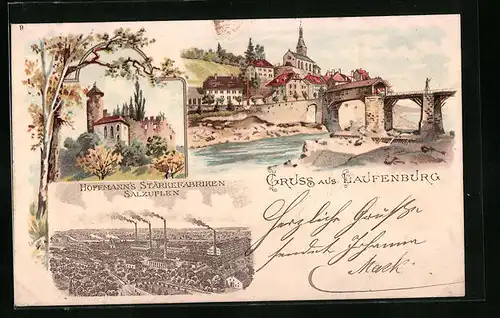 9
HOFFMANN'S STÄRKEFABRIKEN
SALZUFLEN
GRUSS AUS LAUFENBURG
Herzliche Grüsse
sendet Johanna
Mack